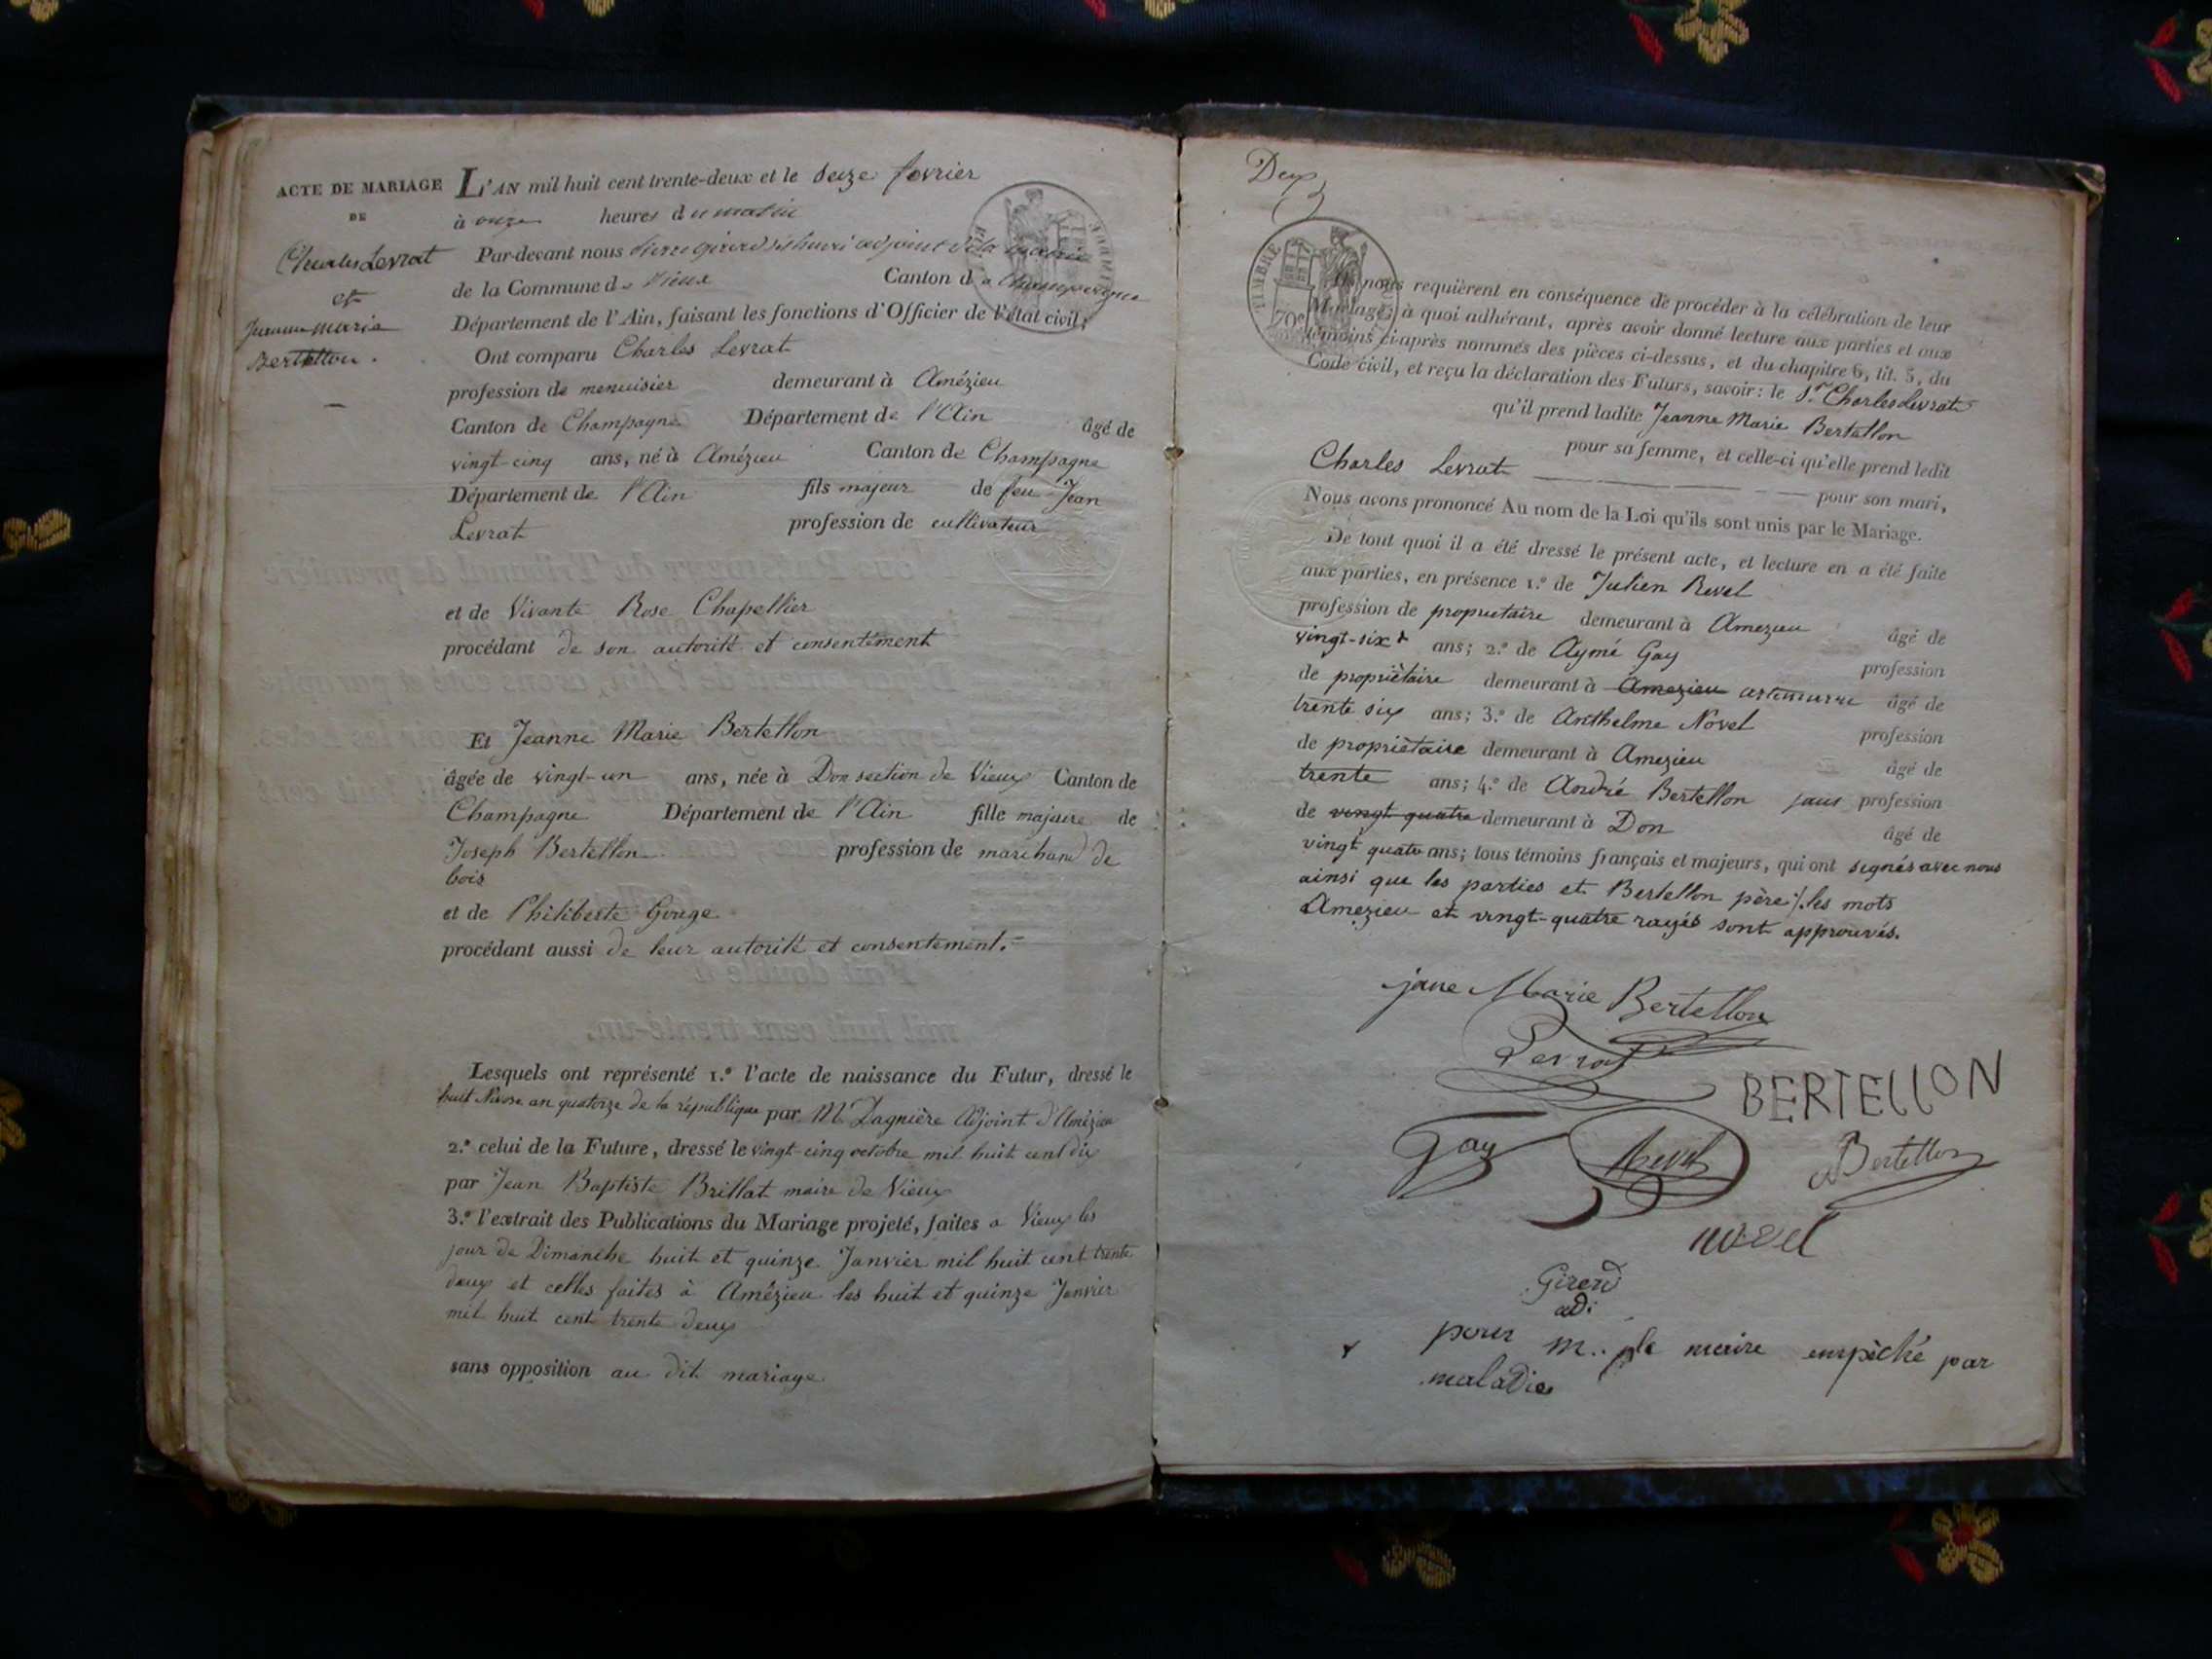 ACTE DE MARIAGE
DE
Charles Levrat
et
Jeanne Marie
Bertellon.
L'AN mil huit cent trente-deux et le seize fevrier
à onze heures du matin
Par-devant nous adjoint de la mairie
de la Commune de Vieux Canton de Champagne
Département de l'Ain, faisant les fonctions d'Officier de l'état civil;
Ont comparu Charles Levrat
profession de menuisier demeurant à Amézieu
Canton de Champagne Département de l'Ain âgé de
vingt-cinq ans, né à Amézieu Canton de Champagne
Département de l'Ain fils majeur de feu Jean
Levrat profession de cultivateur
et de Vivante Rose Chapellier
procédant de son autorité et consentement
Et Jeanne Marie Bertellon
âgée de vingt-un ans, née à Don section de Vieux Canton de
Champagne Département de l'Ain fille majeure de
Joseph Bertellon profession de marchand de
bois
et de Philiberte Gouge
procédant aussi de leur autorité et consentement.
Lesquels ont représenté 1.º l'acte de naissance du Futur, dressé le
huit Nivose an quatorze de la république par M. Dagnière Adjoint d'Amézieu
2.º celui de la Future, dressé le vingt-cinq octobre mil huit cent dix
par Jean Baptiste Brillat maire de Vieux
3.º l'extrait des Publications du Mariage projeté, faites a Vieux les
jour de Dimanche huit et quinze Janvier mil huit cent trente
deux et celles faites à Amézieu les huit et quinze Janvier
mil huit cent trente deux
sans opposition au dit mariage
Deux
TIMBRE ROYAL
70c
Ils nous requièrent en conséquence de procéder à la célébration de leur
Mariage; à quoi adhérant, après avoir donné lecture aux parties et aux
témoins ci-après nommés des pièces ci-dessus, et du chapitre 6, tit. 5, du
Code civil, et reçu la déclaration des Futurs, savoir: le Sr. Charles Levrat
qu'il prend ladite Jeanne Marie Bertellon
pour sa femme, et celle-ci qu'elle prend ledit
Charles Levrat pour son mari,
Nous avons prononcé Au nom de la Loi qu'ils sont unis par le Mariage.
De tout quoi il a été dressé le présent acte, et lecture en a été faite
aux parties, en présence 1.º de Julien Revel
profession de propriétaire demeurant à Amezieu âgé de
vingt-six ans; 2.º de Aymé Gay profession
de propriétaire demeurant à Amezieu âgé de
trente six ans; 3.º de Anthelme Novel profession
de propriétaire demeurant à Amezieu âgé de
trente ans; 4.º de André Bertellon sans profession
de vingt quatre demeurant à Don âgé de
vingt quatre ans; tous témoins français et majeurs, qui ont signés avec nous
ainsi que les parties et Bertellon père /. les mots
Amezieu et vingt-quatre rayés sont approuvés.
jane Marie Bertellon
Levrat
BERTELLON
Gay Revel Bertellon
novel
Girerd
adj
pour M. le maire empêché par
maladie